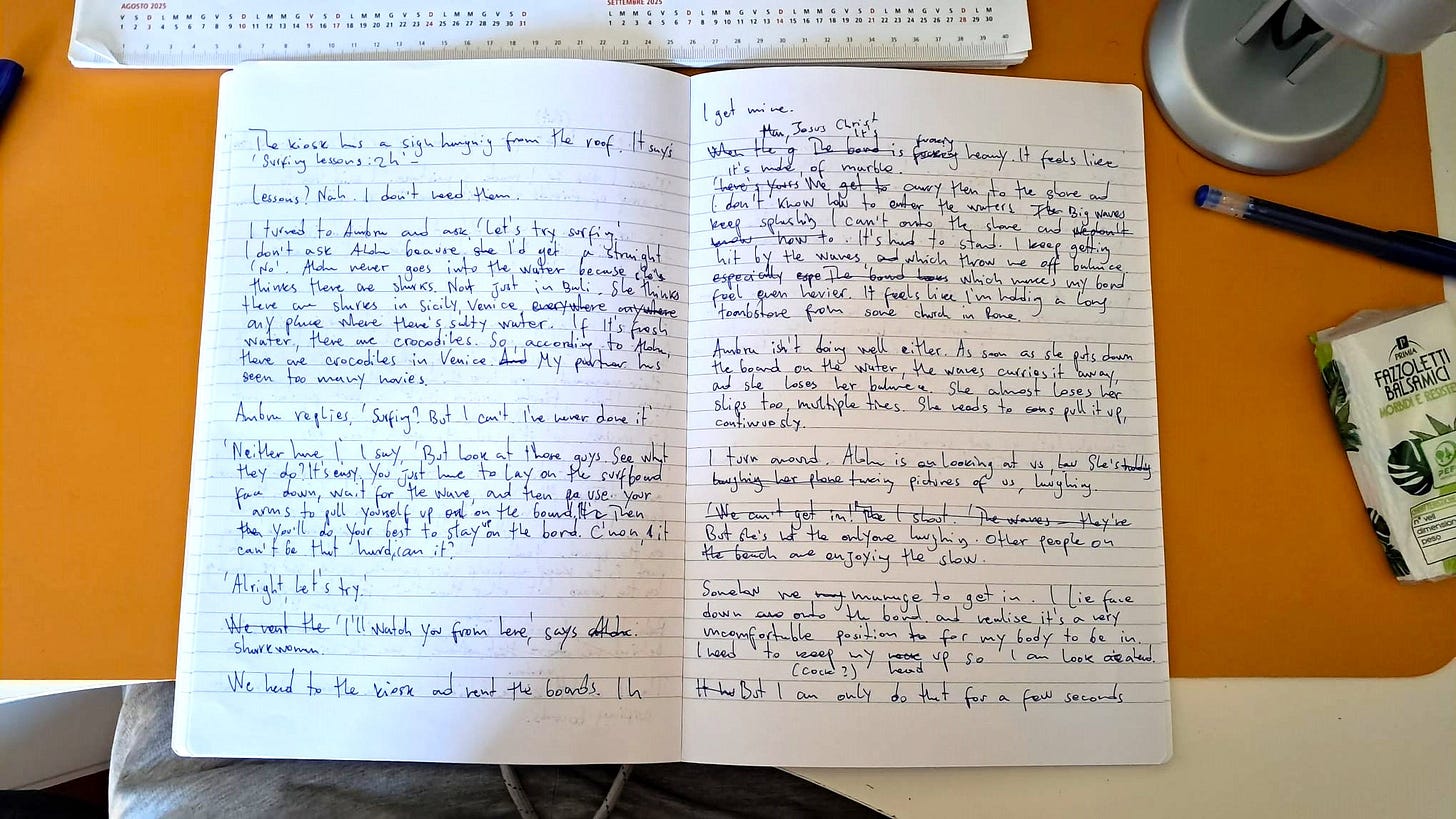 AGOSTO 2025
V S D L M M G V S D L M M G V S D L M M G V S D L M M G V S D
1 2 3 4 5 6 7 8 9 10 11 12 13 14 15 16 17 18 19 20 21 22 23 24 25 26 27 28 29 30 31
SETTEMBRE 2025
L M M G V S D L M M G V S D L M M G V S D L M M G V S D L M
1 2 3 4 5 6 7 8 9 10 11 12 13 14 15 16 17 18 19 20 21 22 23 24 25 26 27 28 29 30
1 2 3 4 5 6 7 8 9 10 11 12 13 14 15 16 17 18 19 20 21 22 23 24 25 26 27 28 29 30 31 32 33 34 35 36 37 38 39 40
The kiosk has a sign hanging from the roof. It says
'Surfing lessons: 2h'-
Lessons? Nah. I don't need them.
I turned to Ambra and ask 'Let's try surfing'
I don't ask Aloha because she I'd get a straight
'No'. Aloha never goes into the water because she's
thinks there are sharks. Not just in Bali. She thinks
there are sharks in Sicily, Venice everywhere anywhere
any place where there's salty water. If it's fresh
water, there are crocodiles. So according to Aloha,
there are crocodiles in Venice. And My partner has
seen too many movies.
Ambra replies, 'Surfing? But I can't. I've never done it'
'Neither have I' I say, 'But look at those guys. See what
they do? It's easy. You just have to lay on the surfboard
face down, wait for the wave, and then use your
arms to pull yourself up on the board. Then
then you'll do your best to stay up on the bord. C'mon, it
can't be that hard, can it?
'Alright, let's try.'
We rent the 'I'll watch you from here,' says Aloha.
Shark woman.
We head to the kiosk and rent the boards. 1h
I get mine.
Man, Jesus Christ
It's
freaking
When the g The bord is fucking heavy. It feels like
it's made of marble.
'here's yours We get to carry them to the shore and
I don't know how to enter the waters. The Big waves
keep splashing I can't onto the shore and
know how to. It's hard to stand. I keep getting
hit by the waves and which throw me off balance
especially espe The board which makes my bord
feel even hevier. It feels like I'm holding a long
toombstone from some church in Rome.
Ambra isn't doing well either. As soon as she puts down
the board on the water, the waves curries it away,
and she loses her balance. She almost loses her
slips too, multiple times. She needs to pull it up,
continuosly.
I turn around. Aloha is looking at us She's
laughing her phone taking pictures of us, laughing.
'We can't get in!' The I shout. 'The waves - they're
But she's not the only one laughing. Other people on
the beach are enjoying the show.
Somehow we manage to get in. I lie face
down onto the bord and realise it's a very
uncomfortable position to for my body to be in.
I need to keep my neck up so I can look ahead.
(cock?) head
But I can only do that for a few seconds
PRIMIA
FAZZOLETTI
BALSAMICI
MORBIDI E RESIS
n° veli
dimension
peso